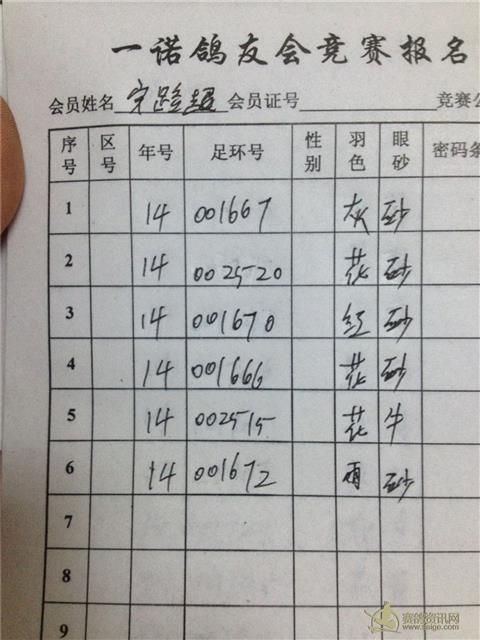 一诺鸽友会竞赛报名
会员姓名 宋路超 会员证号 竞赛公
序号 区号 年号 足环号 性别 羽色 眼砂 密码条
1 14 001667 灰 砂
2 14 002520 花 砂
3 14 001670 红 砂
4 14 001666 花 砂
5 14 002515 花 牛
6 14 001672 雨 砂
7
8
9
赛鸽资讯网
www.saige.com